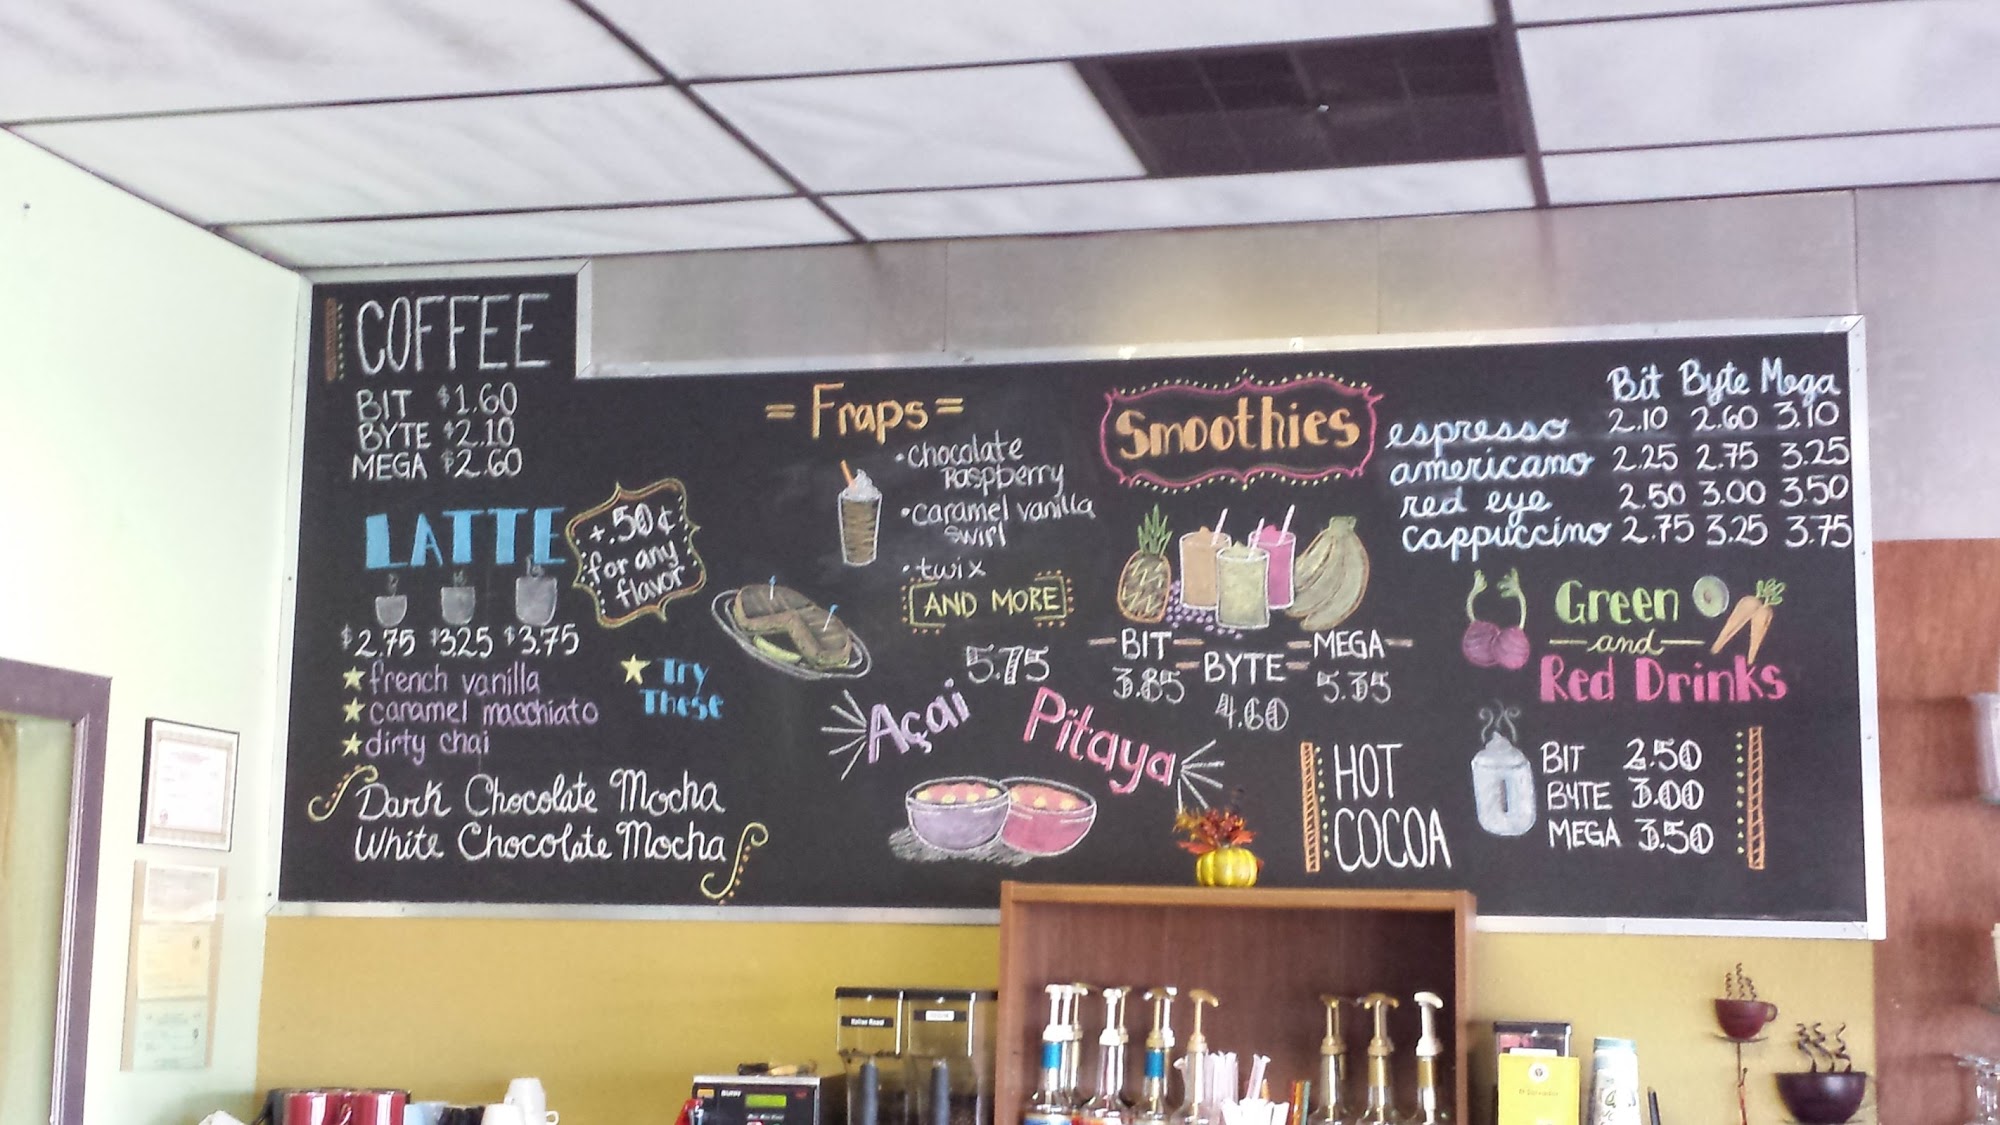 COFFEE
BIT $1.60
BYTE $2.10
MEGA $2.60
LATTE
+.50¢
for any
flavor
$2.75 $3.25 $3.75
french vanilla
caramel macchiato
dirty chai
Try
These
Dark Chocolate Mocha
White Chocolate Mocha
= Fraps =
• chocolate
Raspberry
• caramel vanilla
swirl
• twix
AND MORE
5.75
Açai
Pitaya
Smoothies
BIT
3.85
BYTE
4.60
MEGA
5.35
Bit Byte Mega
espresso 2.10 2.60 3.10
americano 2.25 2.75 3.25
red eye 2.50 3.00 3.50
cappuccino 2.75 3.25 3.75
Green
and
Red Drinks
HOT
COCOA
BIT 2.50
BYTE 3.00
MEGA 3.50
Italian Roast
BUNN